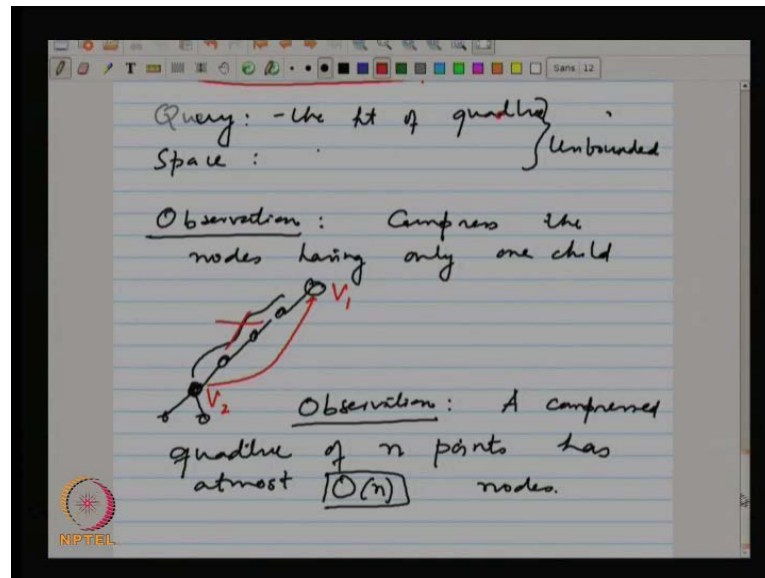 T Sans 12
Query: - the ht of quadtree } Unbounded
Space :
Observation : Compress the
nodes having only one child
V1
V2
Observation : A compressed
quadtree of n points has
atmost O(n) nodes.
NPTEL